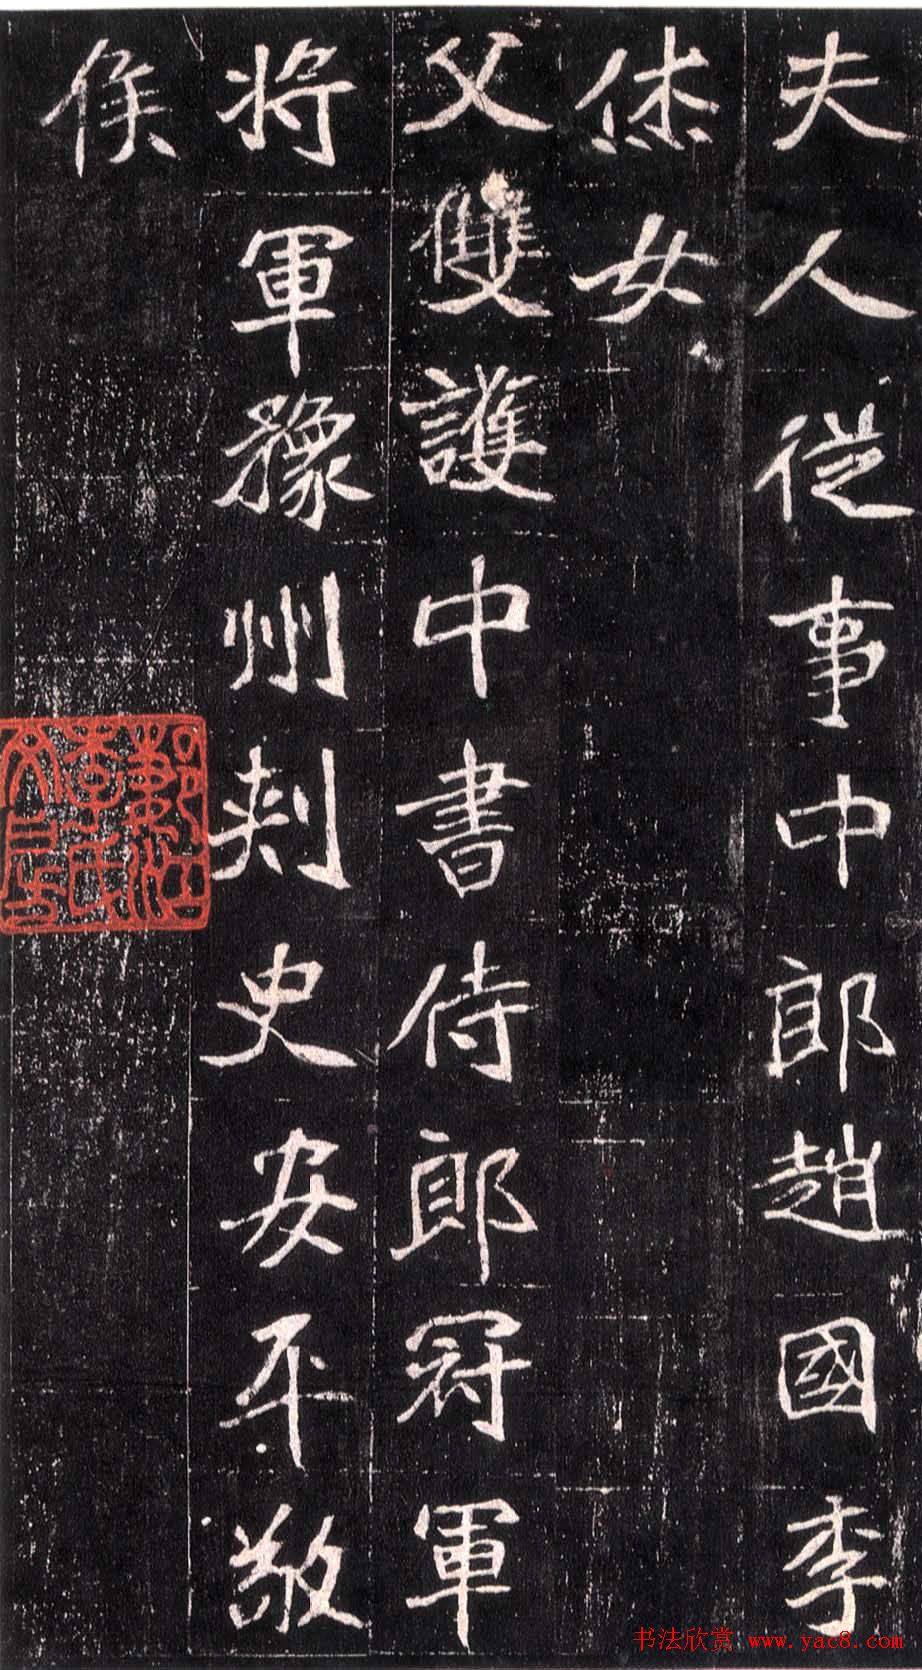 夫人從事中郎趙國李
烋女
父雙護中書侍郎冠軍
將軍豫州刺史安平敬
侯
书法欣赏 www.yac8.com